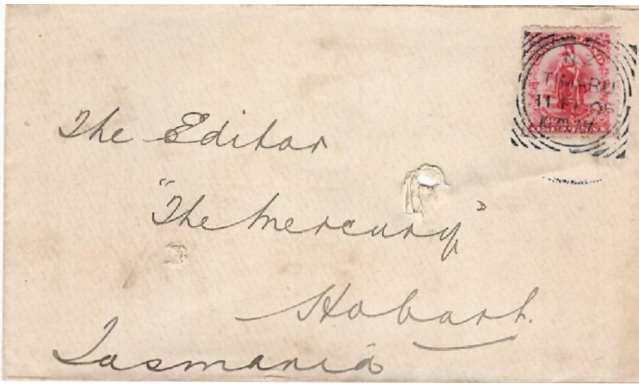 TIMARU
The Editor
"The Mercury"
Hobart.
Tasmania